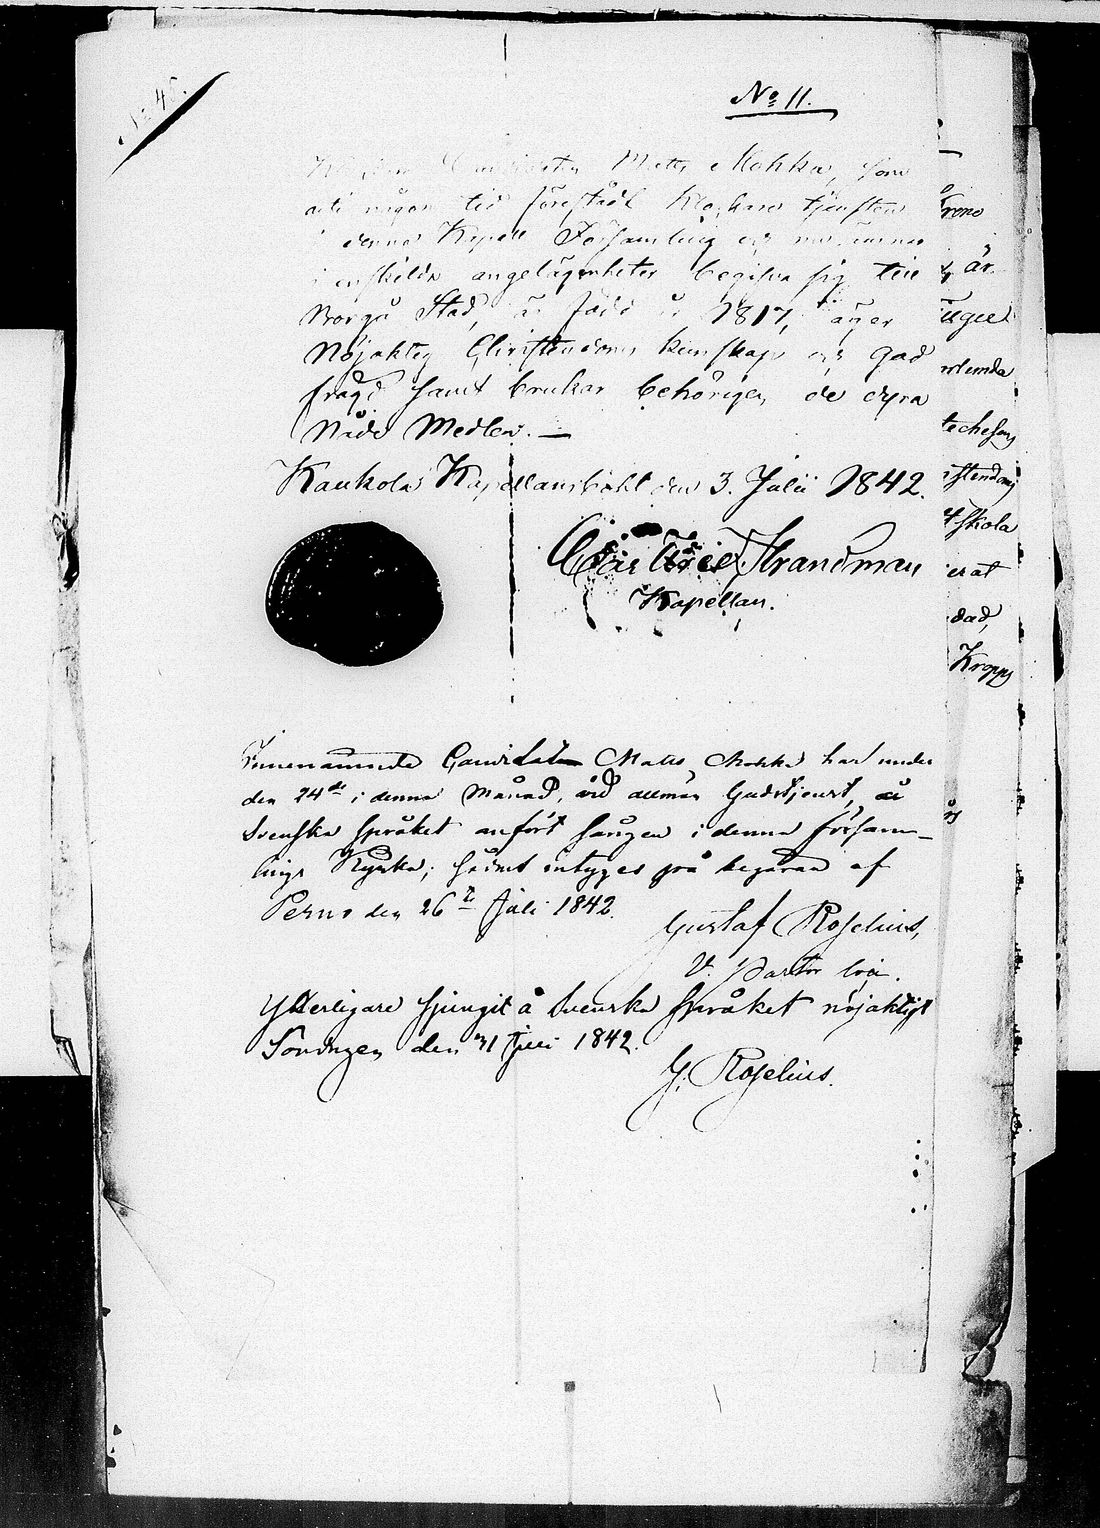 No 11.
Matts Mohka, som
uti någon tid förestådt Klockare tjensten
i denna Kapell Församling och nu ämnar
i enskilda angelägenheter begifva sig till
Borgå Stad, är född år 1817, äger
Nöjaktig Christendoms kunskap och god
frägd samt brukar behörigen de dyra
Nåde Medlen. —
Kaukola Kapellansbohl den 3. Julii 1842.
Strandman
Kapellan.
Innenämnde Candidaten Matts Mohka har under
den 24de i denna Månad, vid allmän Gudstjenst, å
Svenska språket anfört sången i denna försam-
lings Kyrka; hvilket intygas på begäran af
Perno den 26te Juli 1842.
Gustaf Roselius,
V. Pastor loci.
Ytterligare sjungit å Svenska språket nöjaktigt
Söndagen den 31 Juli 1842.
G. Roselius.
Krono
är
techesen
skola
dad,
Kropps